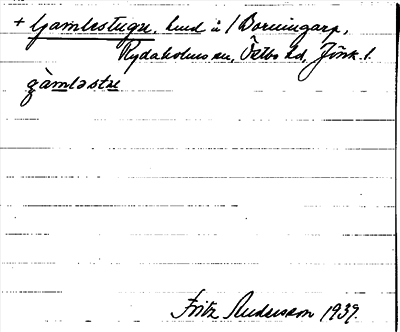 + Gamlestugn. hund å / Borningarp,
Rydaholms sn, Östbo hd, Jönk. l.
gàmləstɯ
Fritz Andersson 1939.